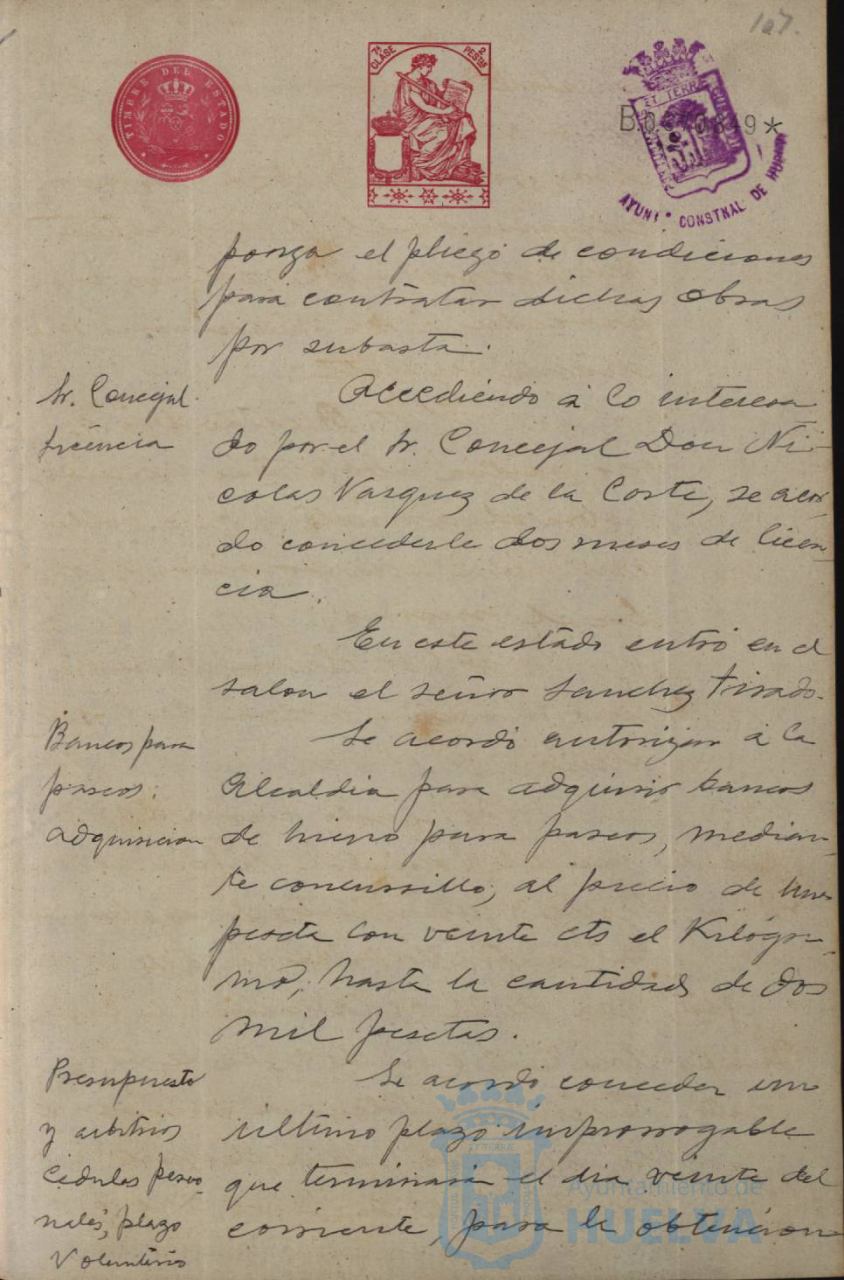 107.
TIMBRE DEL ESTADO
7ª CLASE
2 PESTAS
B.0.
849*
ET TERRÆ
AYUNTº CONSTNAL DE HUELVA
ponga el pliego de condiciones
para contratar dichas obras
por subasta.
Sr. Concejal.
licencia
Accediendo á lo interesa
do por el Sr. Concejal Don Ni-
colas Vazquez de la Corte, se acor-
do concederle dos meses de licen
cia.
En este estado entró en el
salon el señor Sanchez Tirado.
Bancos para
paseos:
adquisicion
Se acordó autorizar á la
Alcaldia para adquirir bancos
de hierro para paseos, median-
te concursillo, al precio de una
peseta con veinte cts el Kilógra-
mo, hasta la cantidad de dos
mil pesetas.
Presupuesto
y arbitrios
Cédulas perso-
nales, plazo
voluntario
Se acordó conceder un
último plazo improrrogable
que terminará el dia veinte del
corriente, para la obtencion
Ayuntamiento de
HUELVA